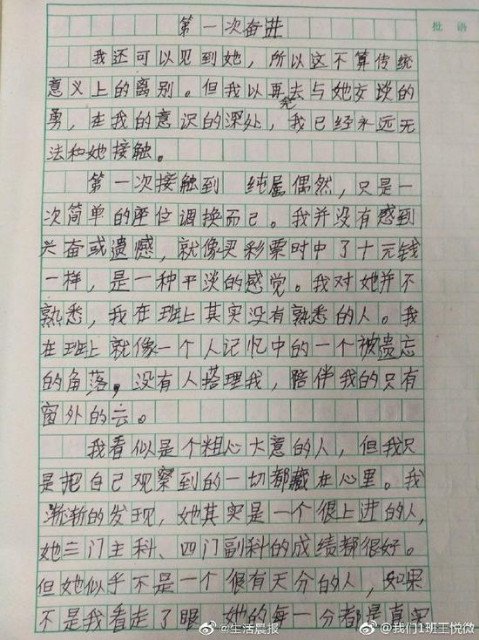 第一次奋进
批语
我还可以见到她，所以这不算传统
意义上的离别。但我以再无去与她交谈的
勇，在我的意识的深处，我已经永远无
法和她接触。
第一次接触到 纯属偶然，只是一
次简单的座位调换而已。我并没有感到
兴奋或遗憾，就像买彩票时中了十元钱
一样，是一种平淡的感觉。我对她并不
熟悉，我在班上其实没有熟悉的人。我
在班上就像一个人记忆中的一个被遗忘
的角落，没有人搭理我，陪伴我的只有
窗外的云。
我看似是个粗心大意的人，但我只
是把自己观察到的一切都藏在心里。我
渐渐的发现，她其实是一个很上进的人，
她三门主科、四门副科的成绩都很好。
但她似乎不是一个很有天分的人，如果
不是我看走了眼，她的每一分都是真实
@生活晨报
@我们1班王悦微